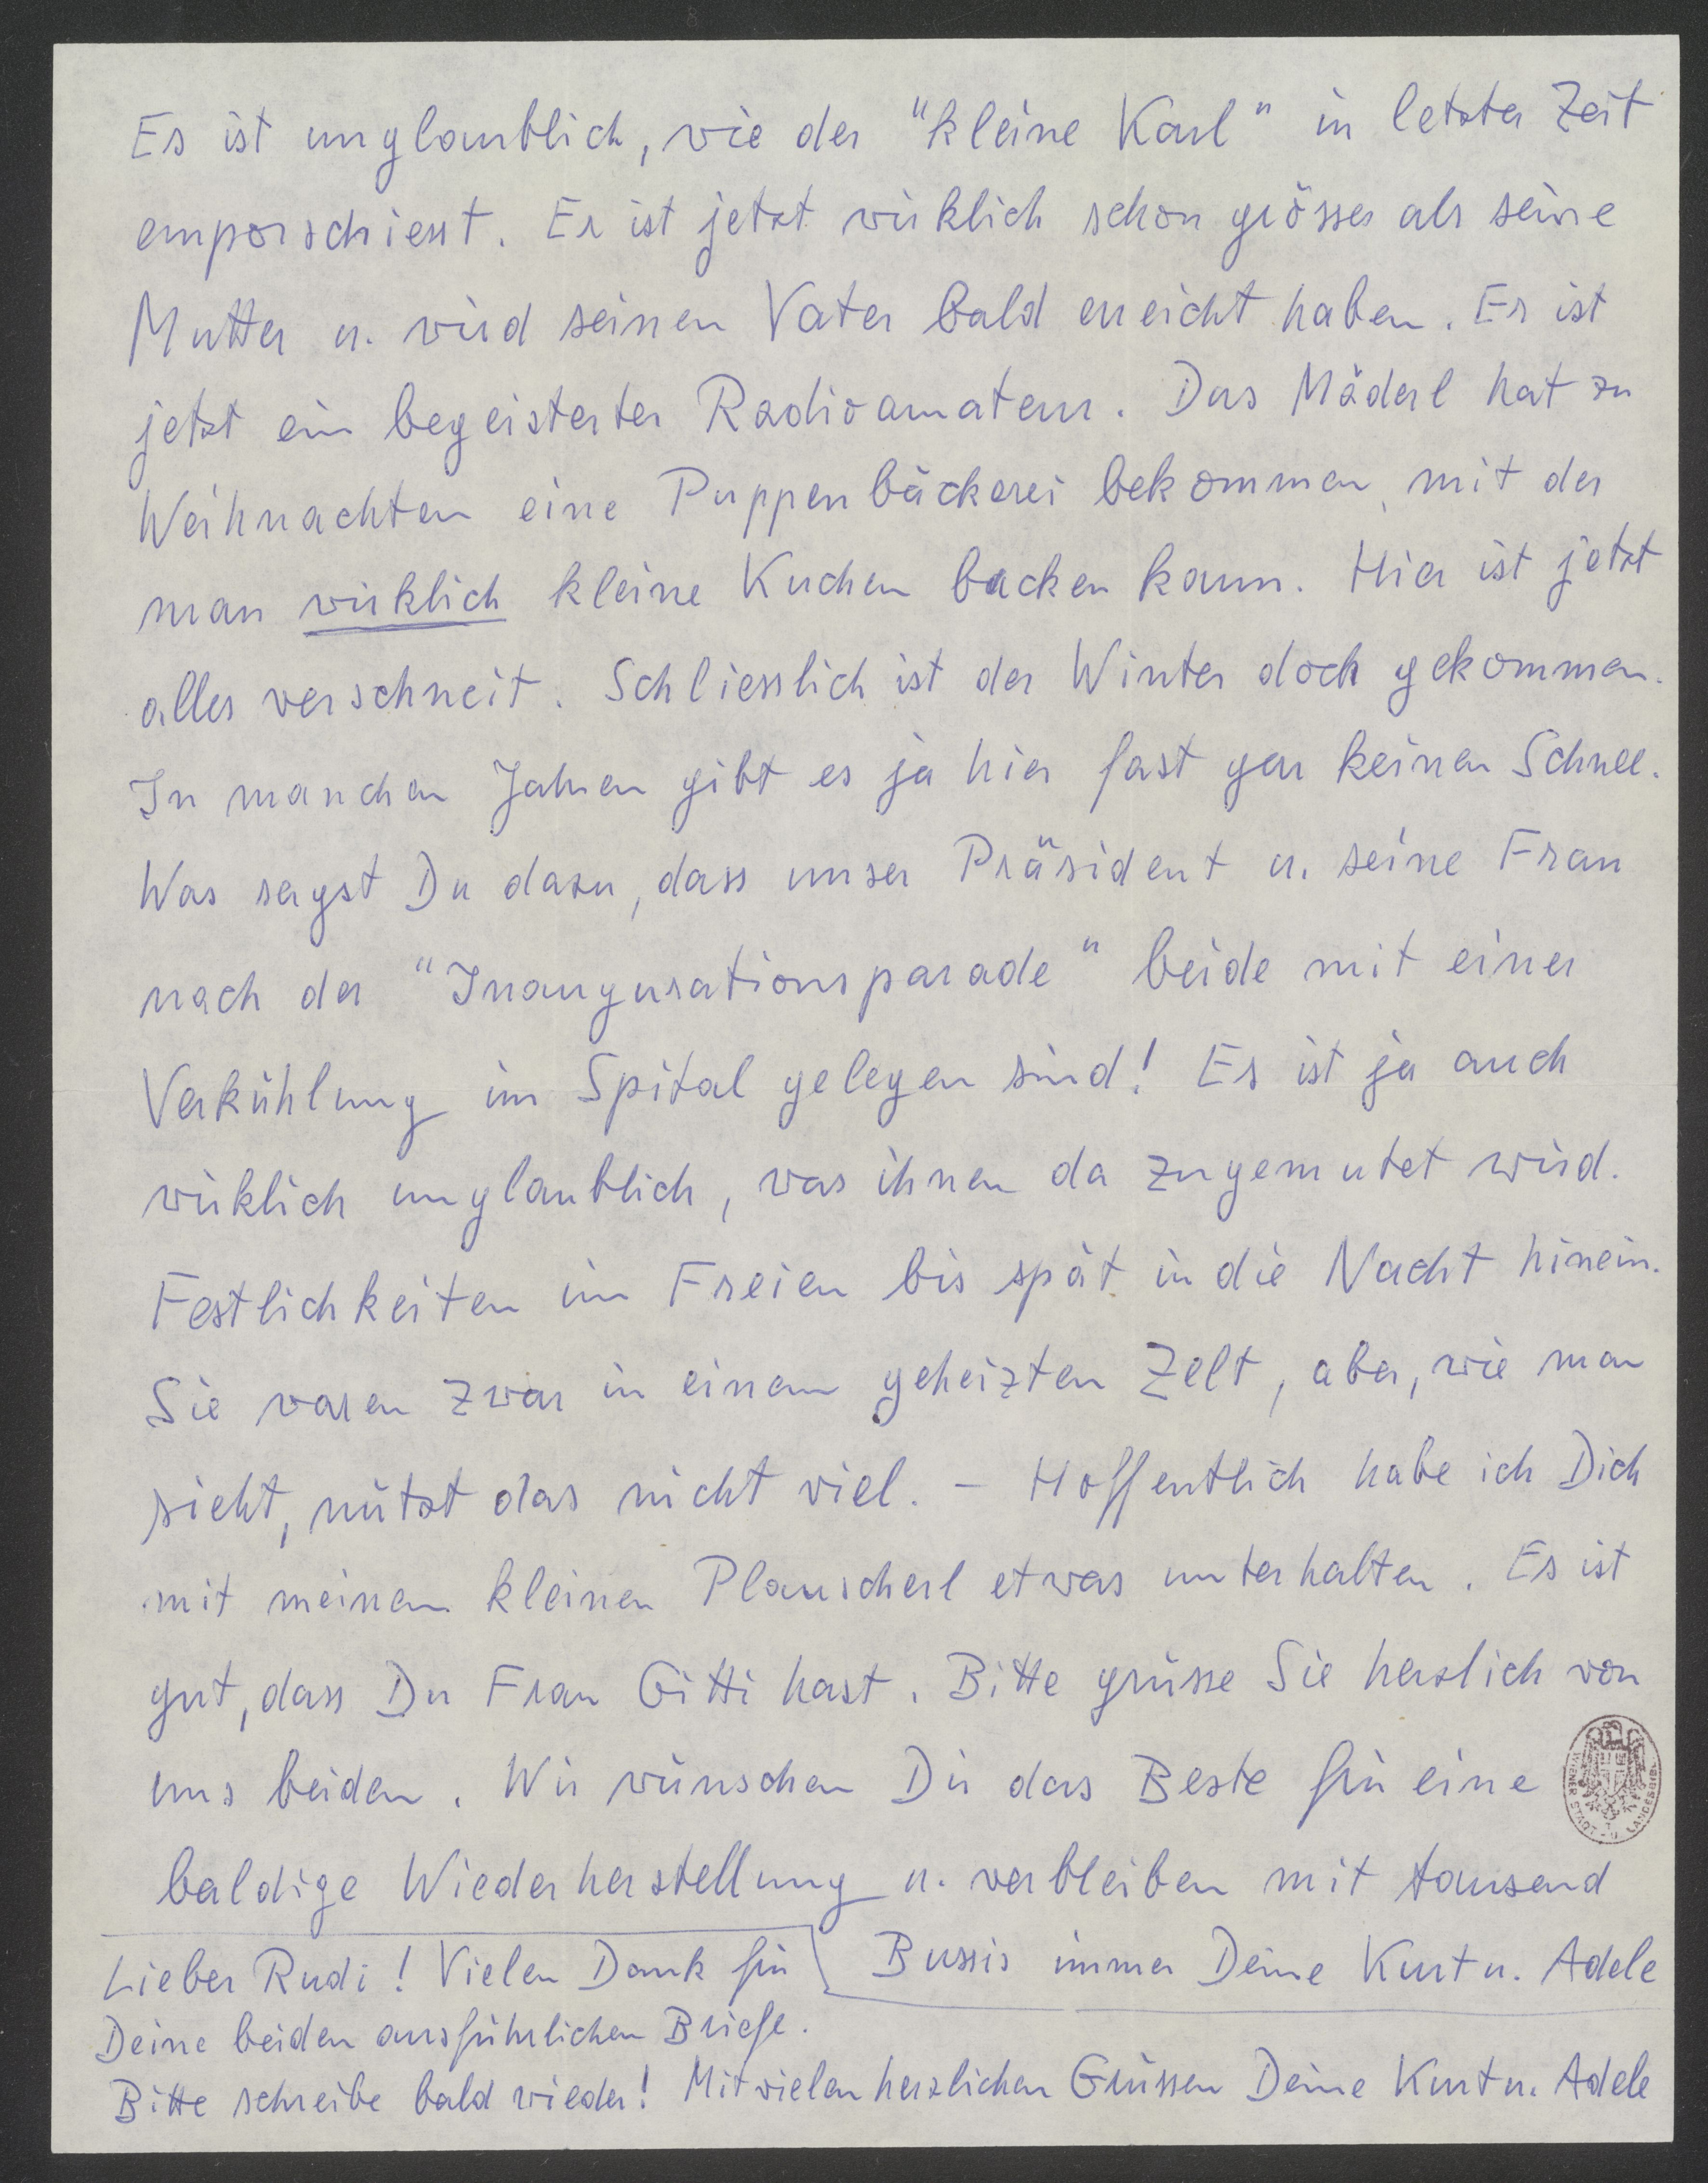 Es ist unglaublich, wie der "kleine Karl" in letzter Zeit
emporschiesst. Er ist jetzt wirklich schon grösser als seine
Mutter u. wird seinen Vater bald erreicht haben. Er ist
jetzt ein begeisterter Radioamateur. Das Mäderl hat zu
Weihnachten eine Puppenbäckerei bekommen, mit der
man wirklich kleine Kuchen backen kann. Hier ist jetzt
alles verschneit. Schliesslich ist der Winter doch gekommen.
In manchen Jahren gibt es ja hier fast gar keinen Schnee.
Was sagst Du dazu, dass unser Präsident u. seine Frau
nach der "Inaugurationsparade" beide mit einer
Verkühlung im Spital gelegen sind! Es ist ja auch
wirklich unglaublich, was ihnen da zugemutet wird.
Festlichkeiten im Freien bis spät in die Nacht hinein.
Sie waren zwar in einem geheizten Zelt, aber, wie man
sieht, nützt das nicht viel. – Hoffentlich habe ich Dich
mit meinem kleinen Plauscherl etwas unterhalten. Es ist
gut, dass Du Frau Gitti hast. Bitte grüsse Sie herzlich von
uns beiden. Wir wünschen Dir das Beste für eine
WIENER STADT- U. LANDESBIBL.
baldige Wiederherstellung u. verbleiben mit tausend
Bussis immer Deine Kurt u. Adele
Lieber Rudi! Vielen Dank für
Deine beiden ausführlichen Briefe.
Bitte schreibe bald wieder! Mit vielen herzlichen Grüssen Deine Kurt u. Adele